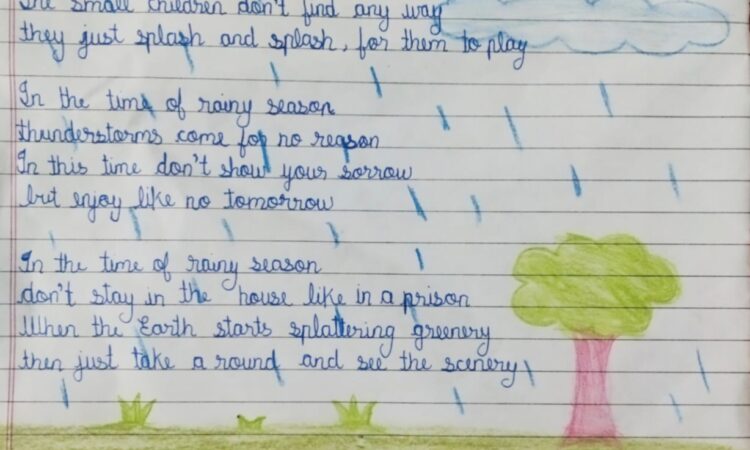 The small children don't find any way
they just splash and splash, for them to play
In the time of rainy season
thunderstorms come for no reason
In this time don't show your sorrow
but enjoy like no tomorrow
In the time of rainy season
don't stay in the house like in a prison
When the Earth starts splattering greenery
then just take a round and see the scenery